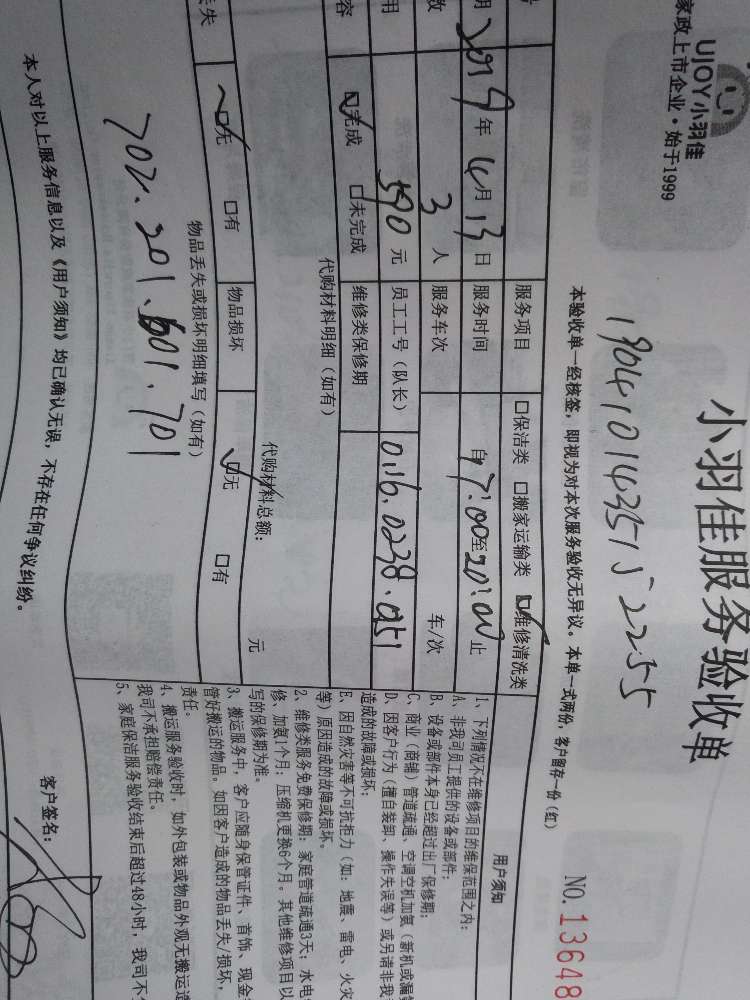 UJOY小羽佳
家政上市企业·始于1999
小羽佳服务验收单
1904101435152255
本验收单一经核签，即视为对本次服务验收无异议。本单一式两份，客户留存一份(红)
NO.13648
服务项目 □保洁类 □搬家运输类 ☑维修清洗类
期 2019年 4月 13日 服务时间 自17:00至20:00止
数 3人 服务车次 车/次
用 590元 员工工号（队长） 016.0238.051
容 ☑完成 □未完成 维修类保修期
代购材料明细（如有）
代购材料总额： 元
丢失 ☑无 □有 物品损坏 ☑无 □有
物品丢失或损坏明细填写（如有）
702.201.601.701
用户须知
1、下列情况不在维修项目的维保范围之内：
A、非我司员工提供的设备或部件；
B、设备或部件本身已经超过出厂保修期；
C、商业（商铺）管道疏通、空调空机加氨（新机或漏氨
D、因客户行为（擅自装卸、操作失误等）或另请非我
造成的故障或损坏；
E、因自然灾害等不可抗拒力（如：地震、雷电、火灾
等）原因造成的故障或损坏。
2、维修类服务免费保修期：家庭管道疏通3天；水电
修、加氨1个月；压缩机更换6个月。其他维修项目以
写的保修期为准。
3、搬运服务中，客户应随身保管证件、首饰、现金
管好搬运的物品。如因客户造成的物品丢失/损坏，
责任。
4、搬运服务验收时，如外包装或物品外观无搬运造
我司不承担赔偿责任。
5、家庭保洁服务验收结束后超过48小时，我司不
本人对以上服务信息以及《用户须知》均已确认无误，不存在任何争议纠纷。
客户签名：